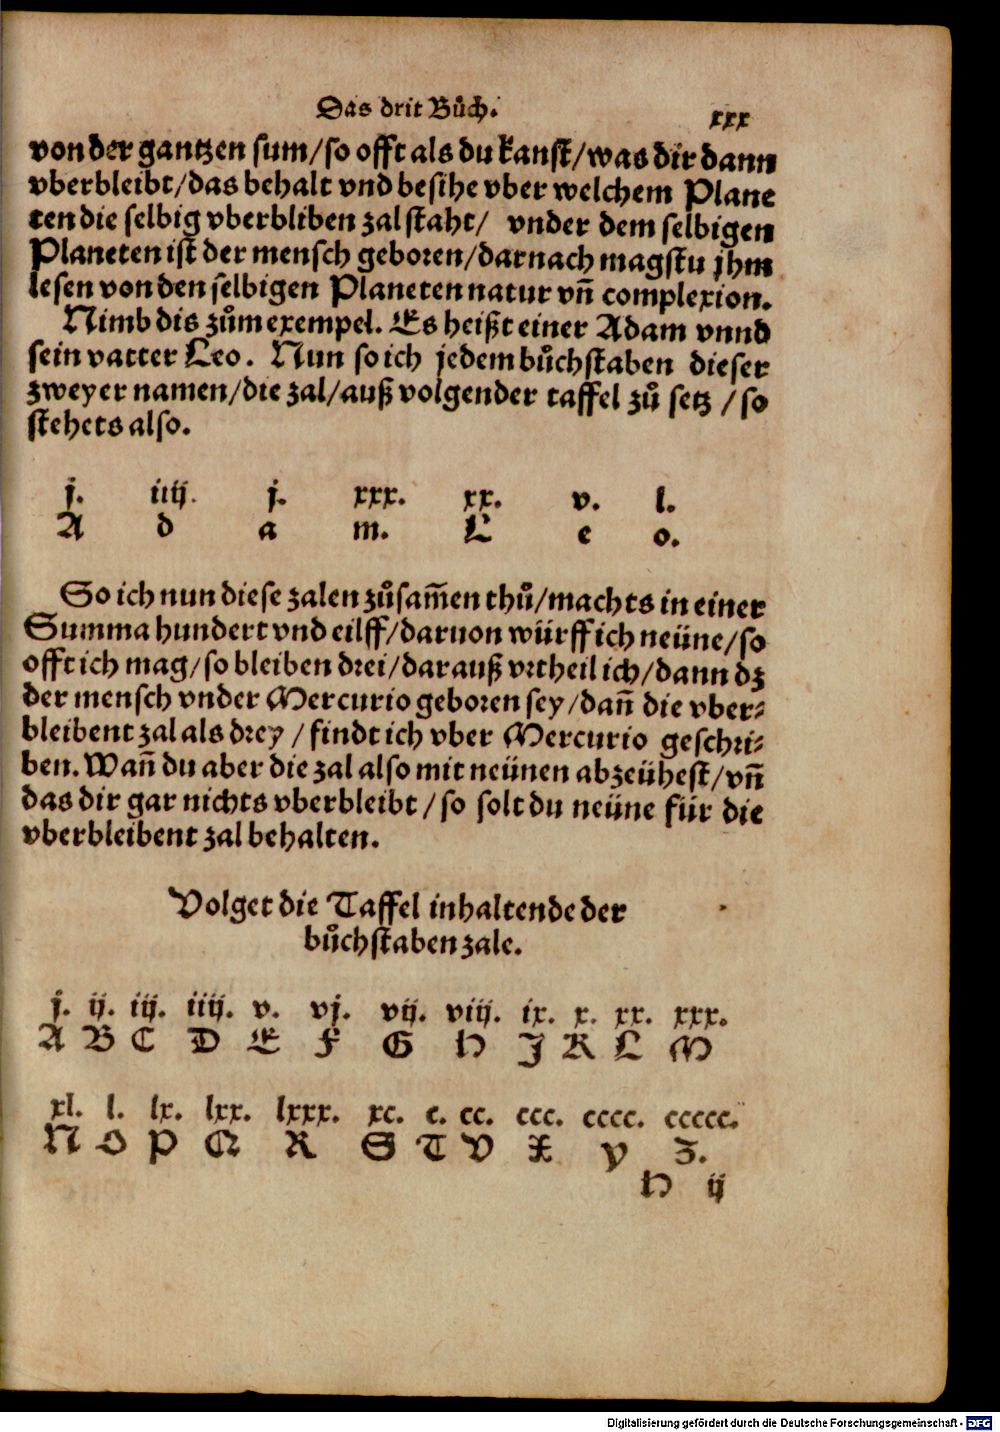 Das drit Bůch.
xxx
von der gantzen sum/so offt als du kanst/was dir dann
vberbleibt/das behalt vnd besihe vber welchem Plane
ten die selbig vberbliben zal staht/ vnder dem selbigen
Planeten ist der mensch geboren/darnach magstu jhm
lesen von den selbigen Planeten natur vñ complexion.
Nimb dis zům exempel. Es heißt einer Adam vnnd
sein vatter Leo. Nun so ich jedem bůchstaben dieser
zweyer namen/die zal/auß volgender taffel zů setz /so
stehets also.
j. iiij. j. xxx. xx. v. l.
A d a m. L e o.
So ich nun diese zalen zůsam̃en thů/machts in einer
Summa hundert vnd eilff/daruon würff ich neüne/so
offt ich mag/so bleiben drei/darauß vrtheil ich/dann dz
der mensch vnder Mercurio geboren sey/dañ die vber⸗
bleibent zal als drey /findt ich vber Mercurio geschri⸗
ben. Wañ du aber die zal also mit neünen abzeühest/vñ
das dir gar nichts vberbleibt/so solt du neüne für die
vberbleibent zal behalten.
Volget die Taffel inhaltende der
bůchstaben zale.
j. ij. iij. iiij. v. vj. vij. viij. ix. x. xx. xxx.
A B C D E F G H J K L M
xl. l. lx. lxx. lxxx. xc. c. cc. ccc. cccc. ccccc.
N O P Q R S T V X Y Z.
H ij
Digitalisierung gefördert durch die Deutsche Forschungsgemeinschaft - DFG